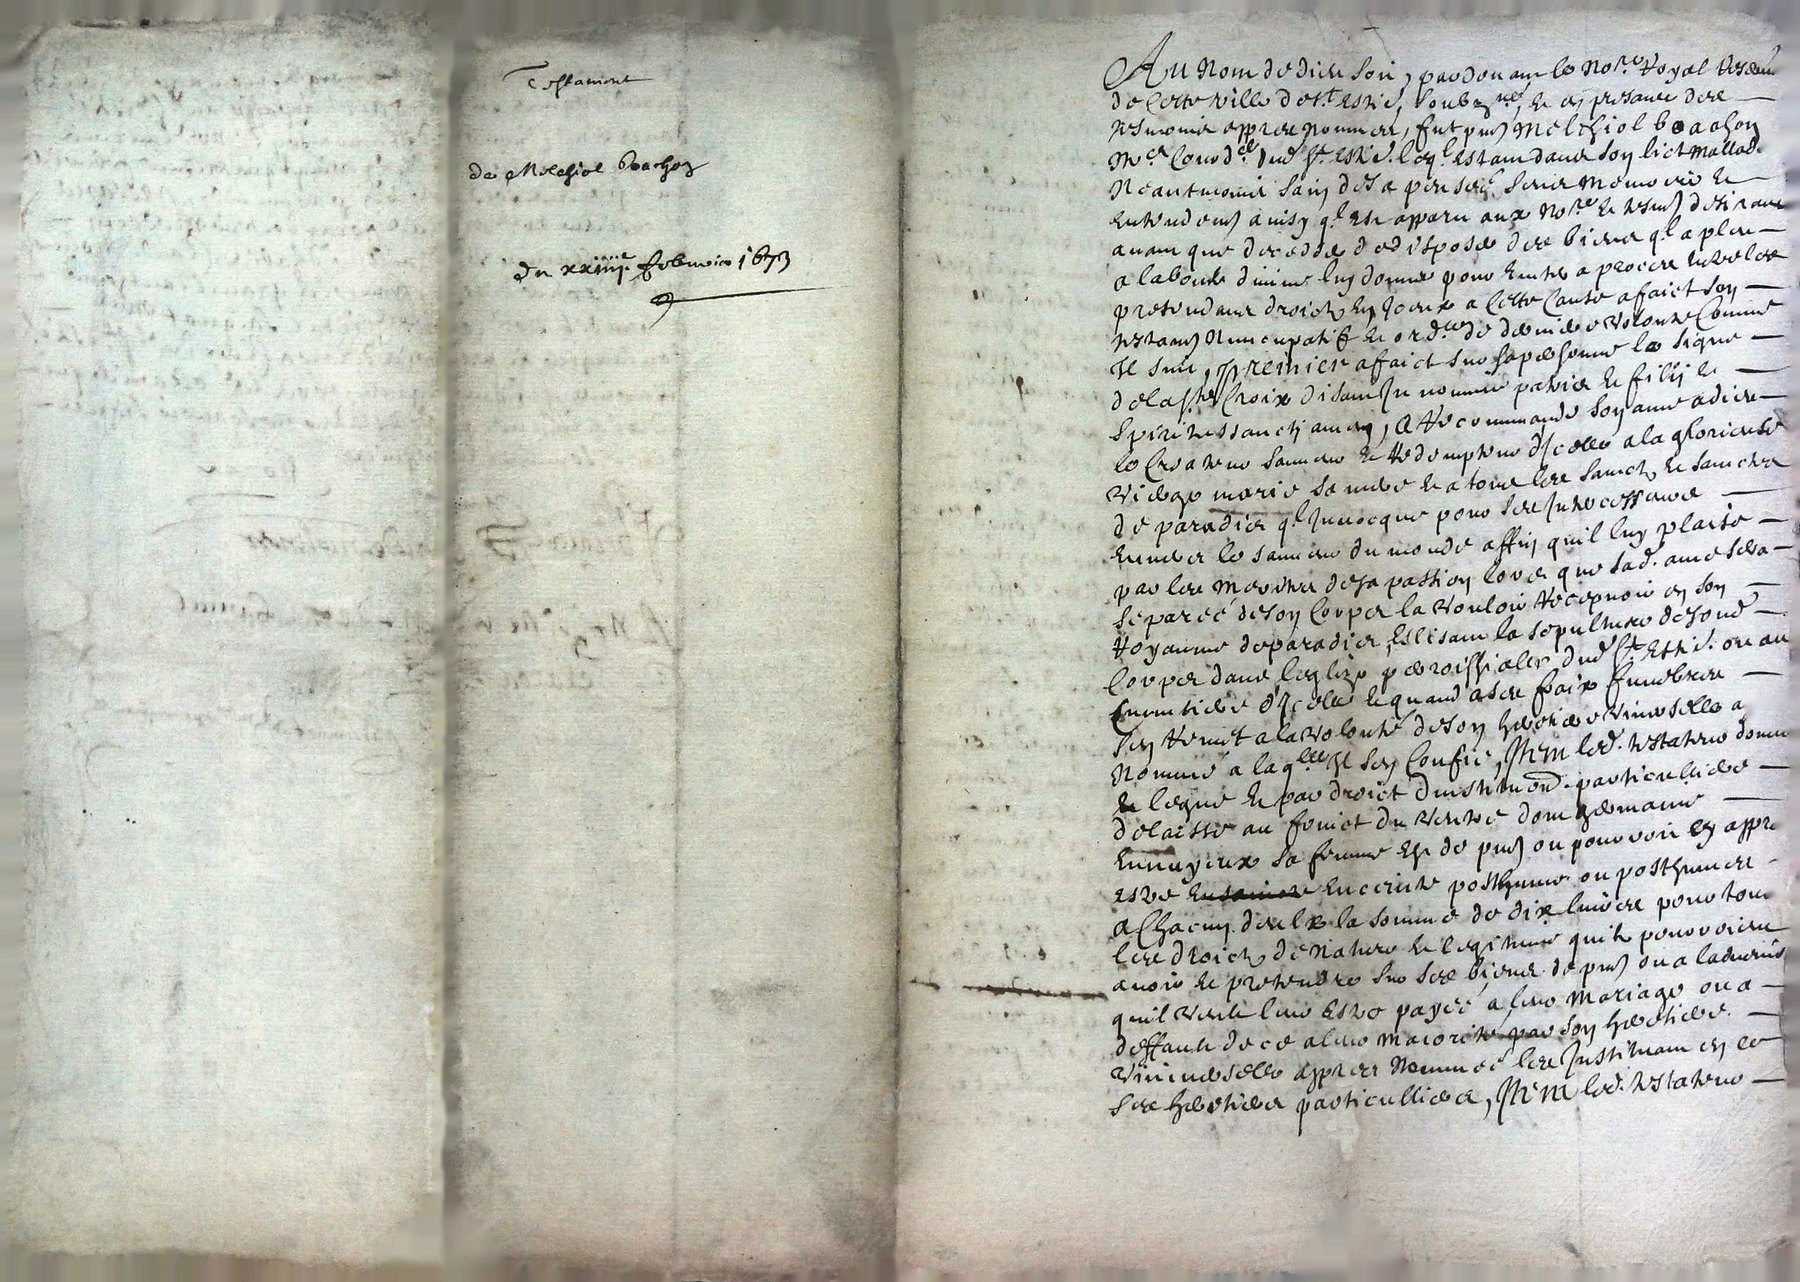 Testament
de Melchiol Brachon
du xxiiii.e febvrier 1673
Au Nom de dieu soit, pardevant le No.re Royal
de Cette ville de S.t Esti.e soubzné, et en presance des
tesmoins appres nommes, fut pnt Melchiol brachon
m.e Cond.er dud St. Esti.e leq.l estant dans son lict mallade
Neantmoins sain de sa pensee sens memoire et
entendemt ainsy q.l est apparu aux No.re et tesm desirant
avant que decedder de disposer des biens q.l a pleu
a la bonte divine luy donner pour eviter a proces entre les
pretendans droict en Iceux a Cette Cause a faict son
testamt Nuncupatif et ord.ce de derniere volonte Comme
Il suit, Premier a faict sur sa personne le signe
de la Ste Croix disant In nomine patris et filij et
spiritus sancti amen, A Recommande son ame a dieu
le Createur sauveur et Redempteur d'Icelle a la glorieuse
Vierge marie sa mere et a tous les saincts et sainctes
de paradis q.l Invocque pour ses Intercesseurs
envers le sauveur du monde affin quil luy plaise
par les merites de sa passion lors que sad. ame sera
separee de son Corps la vouloir Recepvoir en son
Royaume de paradis, Eslisant la sepulture de sond
Corps dans leglize parroissialle dud St Esti.e ou au
Cimetiere d'Icelle et quand a ses fraix funebres
sen Remet a la volonté de son heritiere universelle a
Nommé a laq.lle Il sen Confie, Item led. testateur donne
et legue et par droict d'institu.on particulliere
delaisse au fruict du ventre dont germaine
Ennuyeux sa femme est de pnt ou pourroit cy appres
estre enceinte posthume ou posthumes
a Chacun deulx la somme de dix livres pour tous
les droicts de Nature et legitime quils pourroient
avoir et pretendre sur ses biens de pnt ou a ladvenir
quil veult leur estre payee a leur mariage ou a
deffault de ce a leur maiorité par son heritiere
Universelle appres Nommée les Instituant en ce
ses heritiers particulliers, Item led. testateur